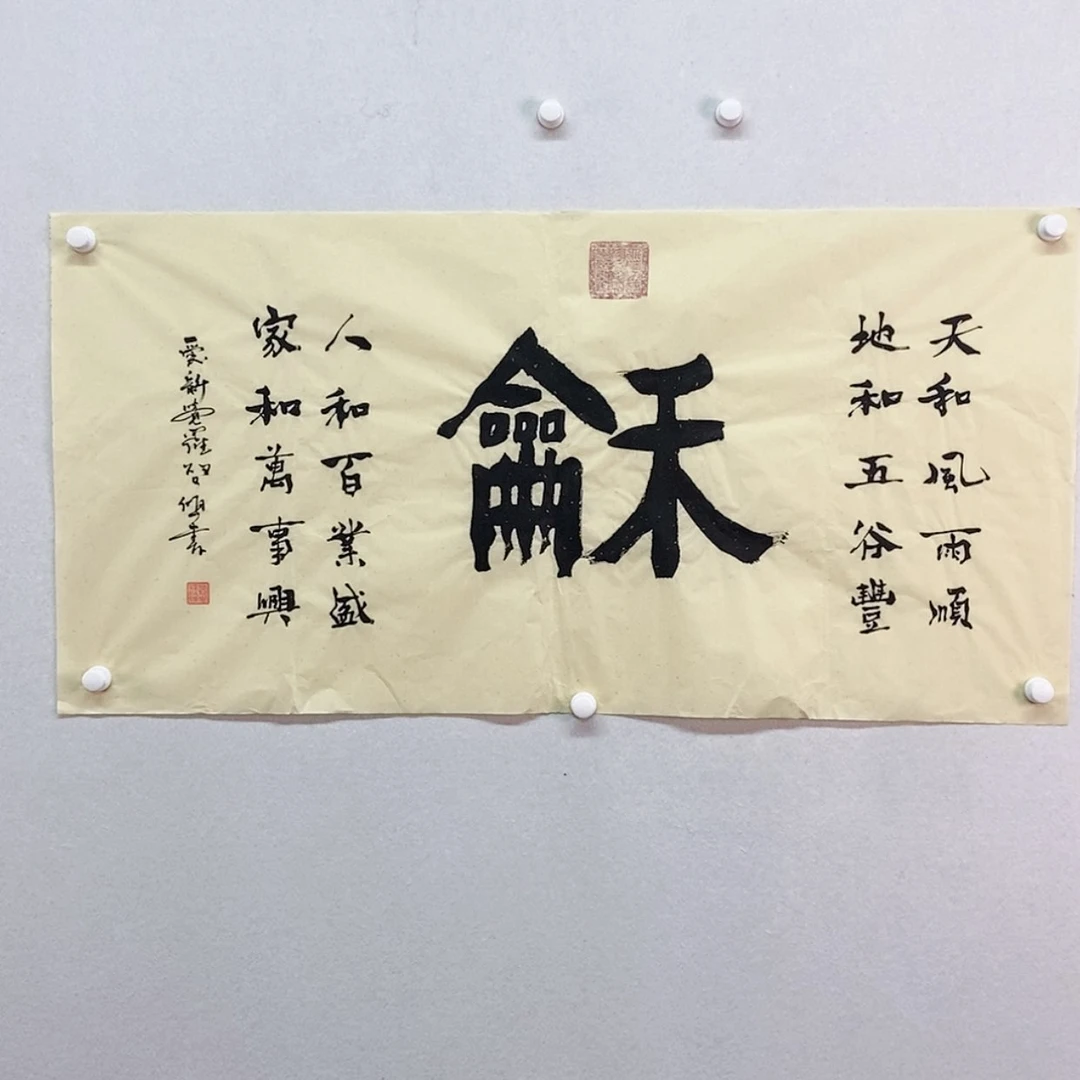 天和風雨順
地和五谷豐
龢
人和百業盛
家和萬事興
愛新覺羅書